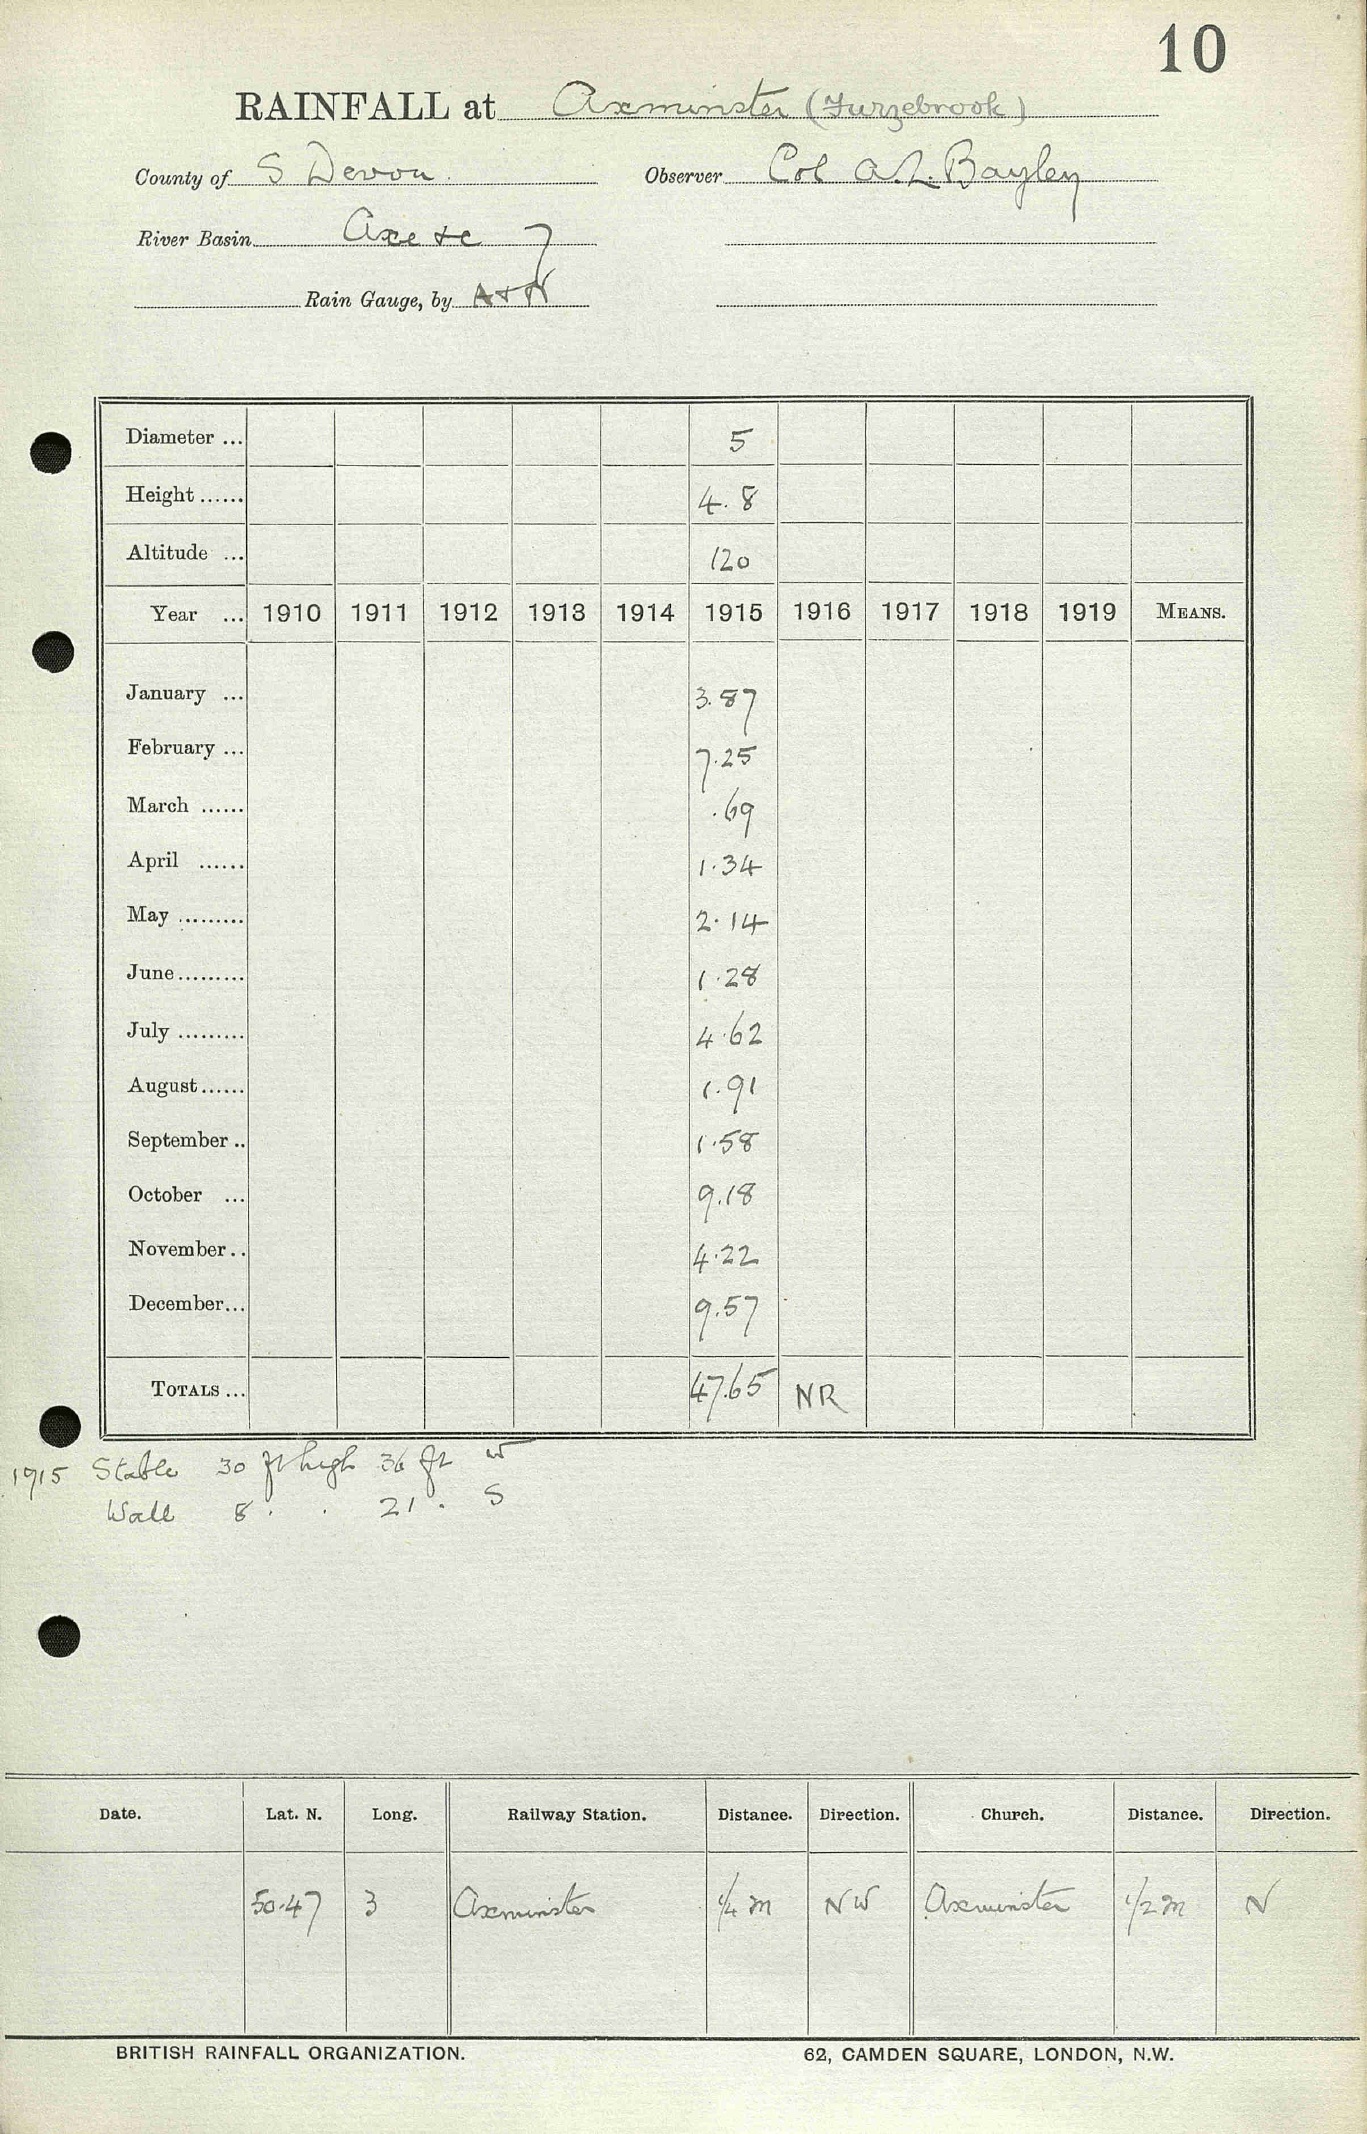 10
RAINFALL at Axminster (Furzebrook)
County of S Devon. Observer Col A.L. Bayley
River Basin Axe &c 7
Rain Gauge, by A & N
Diameter ... 5
Height ...... 4.8
Altitude ... 120
Year ... 1910 1911 1912 1913 1914 1915 1916 1917 1918 1919 MEANS.
January ... 3.87
February ... 7.25
March ...... .69
April ...... 1.34
May ......... 2.14
June......... 1.28
July ......... 4.62
August...... 1.91
September .. 1.58
October ... 9.18
November.. 4.22
December... 9.57
TOTALS ... 47.65 NR
1915 Stable 30 ft high 36 ft W
Wall 8 . . 21 . S
Date. Lat. N. Long. Railway Station. Distance. Direction. Church. Distance. Direction.
50.47 3 Axminster 1/4 m NW Axminster 1/2 m N
BRITISH RAINFALL ORGANIZATION. 62, CAMDEN SQUARE, LONDON, N.W.